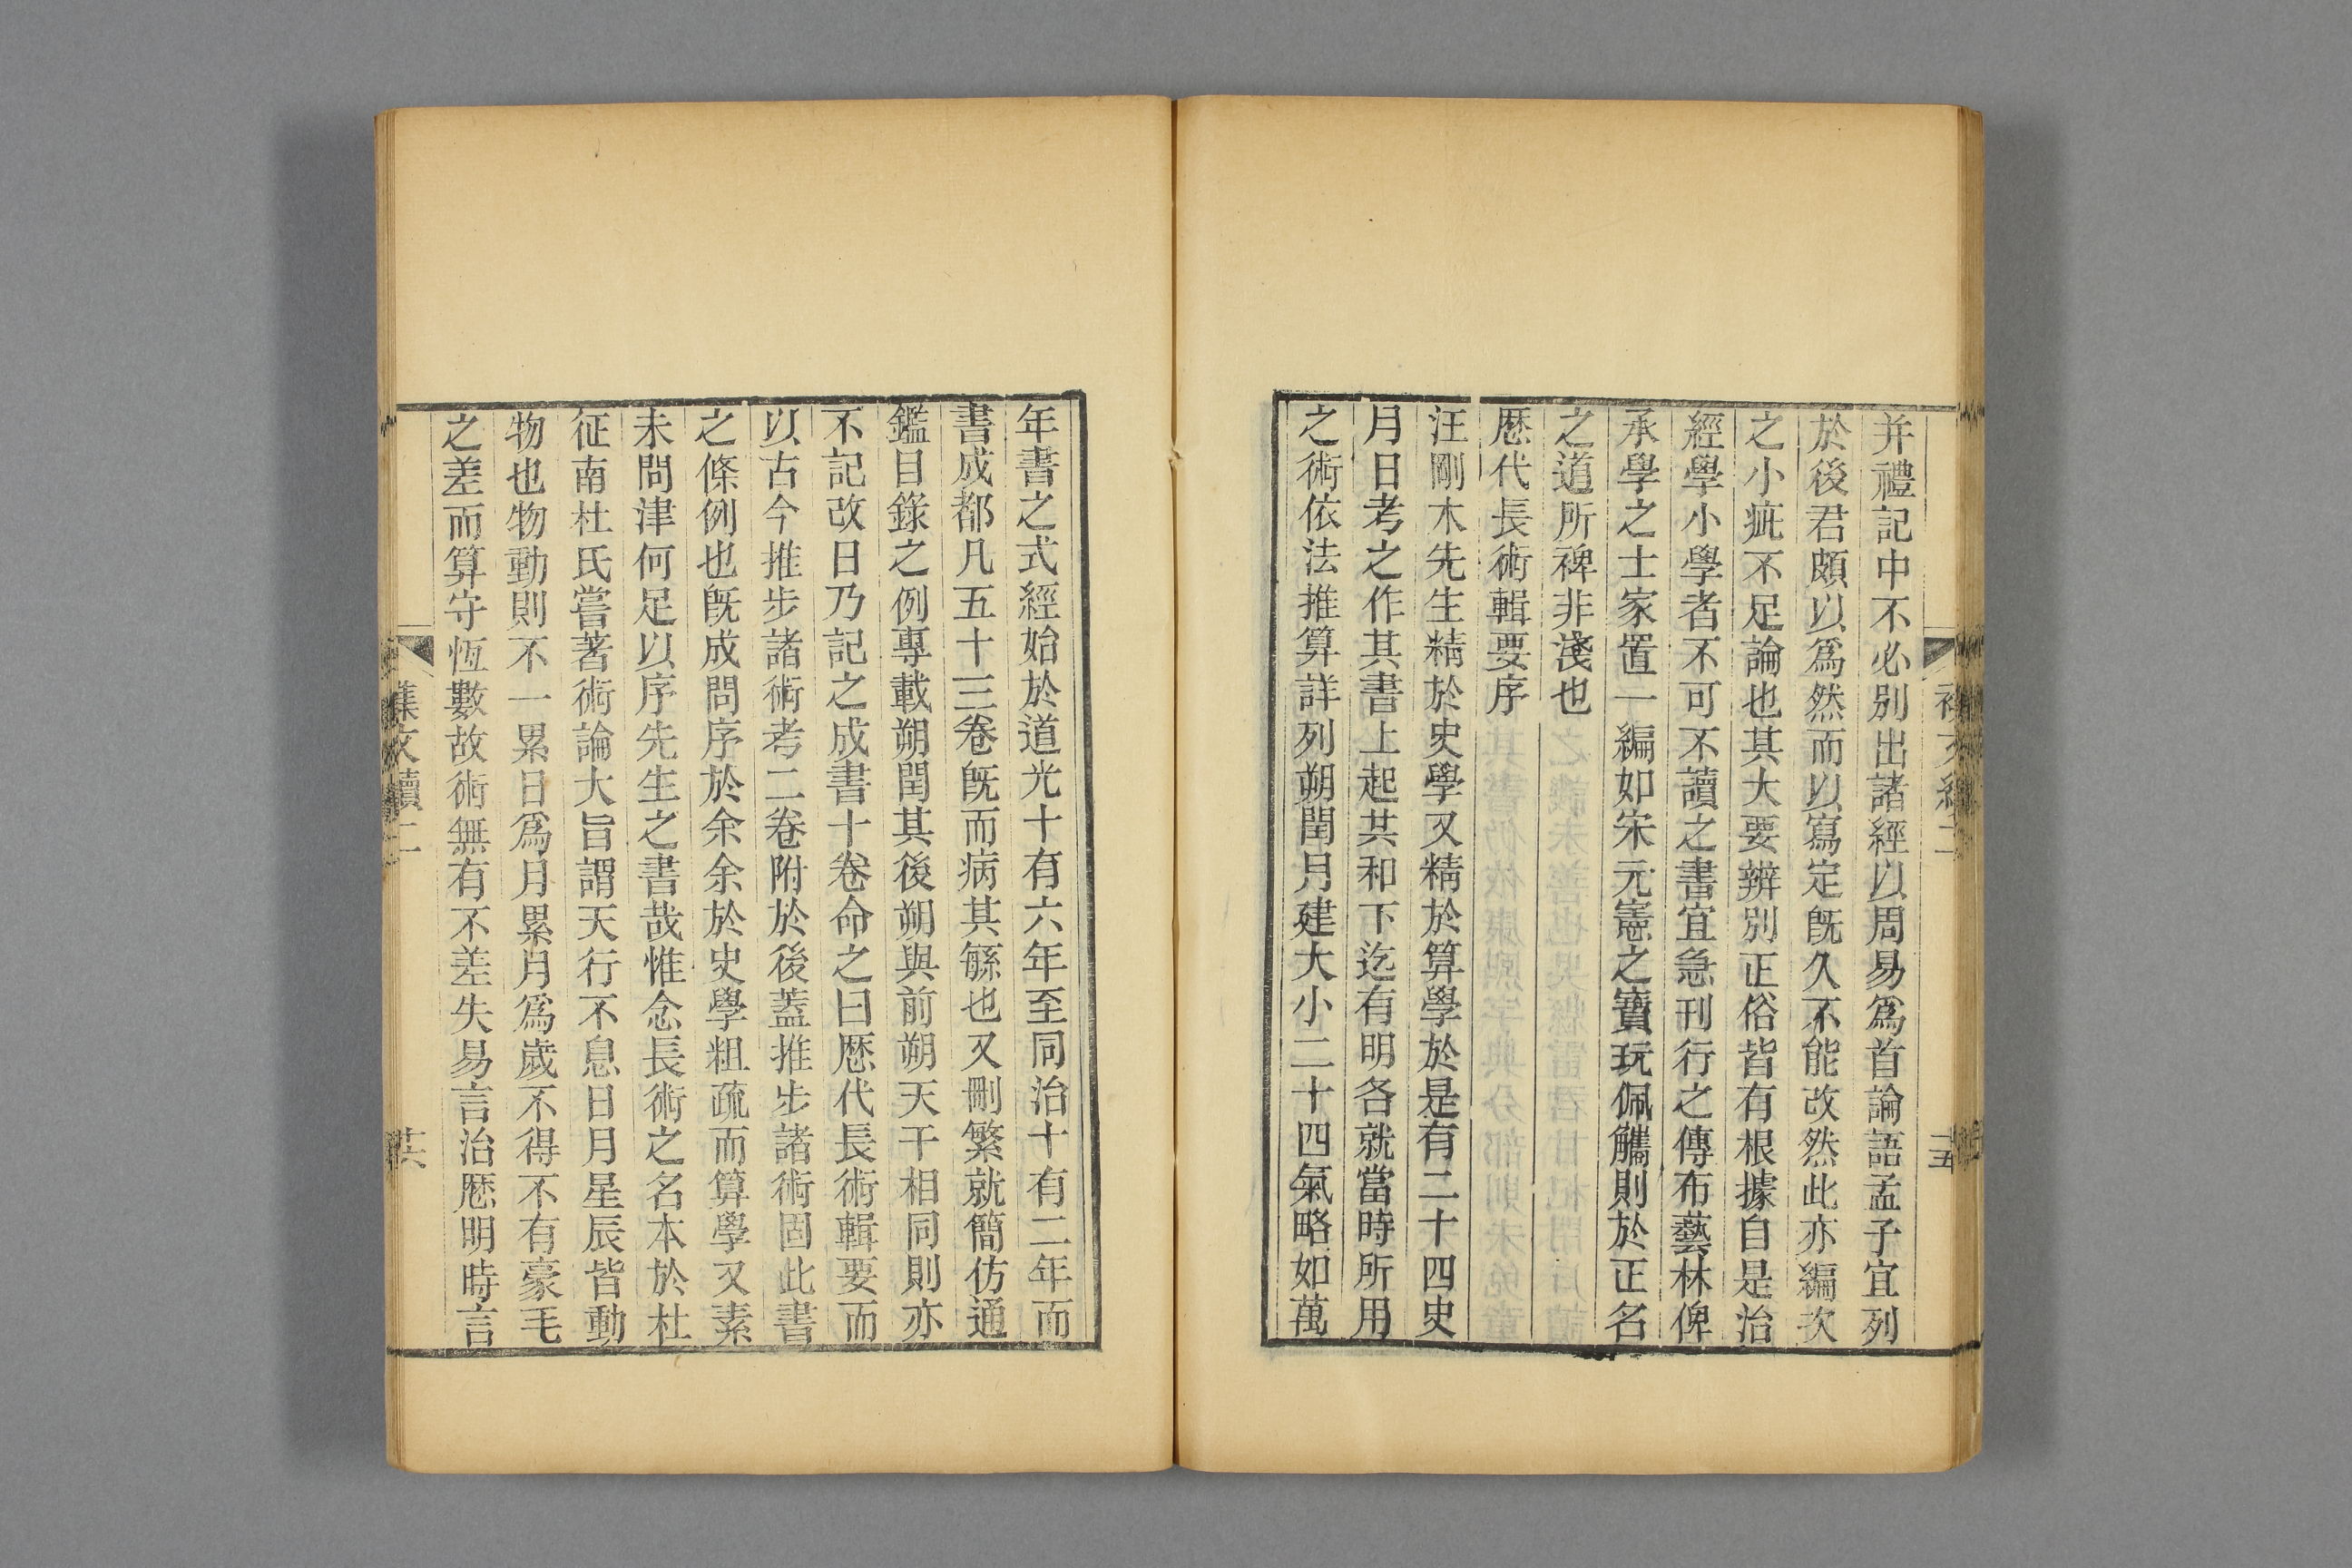 并禮記中不必別出諸經以周易爲首論語孟子宜列
於後君頗以爲然而以寫定旣久不能改然此亦編次
之小疵不足論也其大要辨別正俗皆有根據自是治
經學小學者不可不讀之書宜急刊行之傳布藝林俾
承學之士家置一編如宋元憲之寶玩佩觿則於正名
之道所裨非淺也
歷代長術輯要序
汪剛木先生精於史學又精於算學於是有二十四史
月日考之作其書上起共和下迄有明各就當時所用
之術依法推算詳列朔閏月建大小二十四氣略如萬
年書之式經始於道光十有六年至同治十有二年而
書成都凡五十三卷旣而病其緐也又刪繁就簡仿通
鑑目錄之例專載朔閏其後朔與前朔天干相同則亦
不記改日乃記之成書十卷命之曰歷代長術輯要而
以古今推步諸術考二卷附於後蓋推步諸術固此書
之條例也旣成問序於余余於史學粗疏而算學又素
未問津何足以序先生之書哉惟念長術之名本於杜
征南杜氏嘗著術論大旨謂天行不息日月星辰皆動
物也物動則不一累日爲月累月爲歲不得不有豪毛
之差而算守恆數故術無有不差失易言治歷明時言
襍文續二